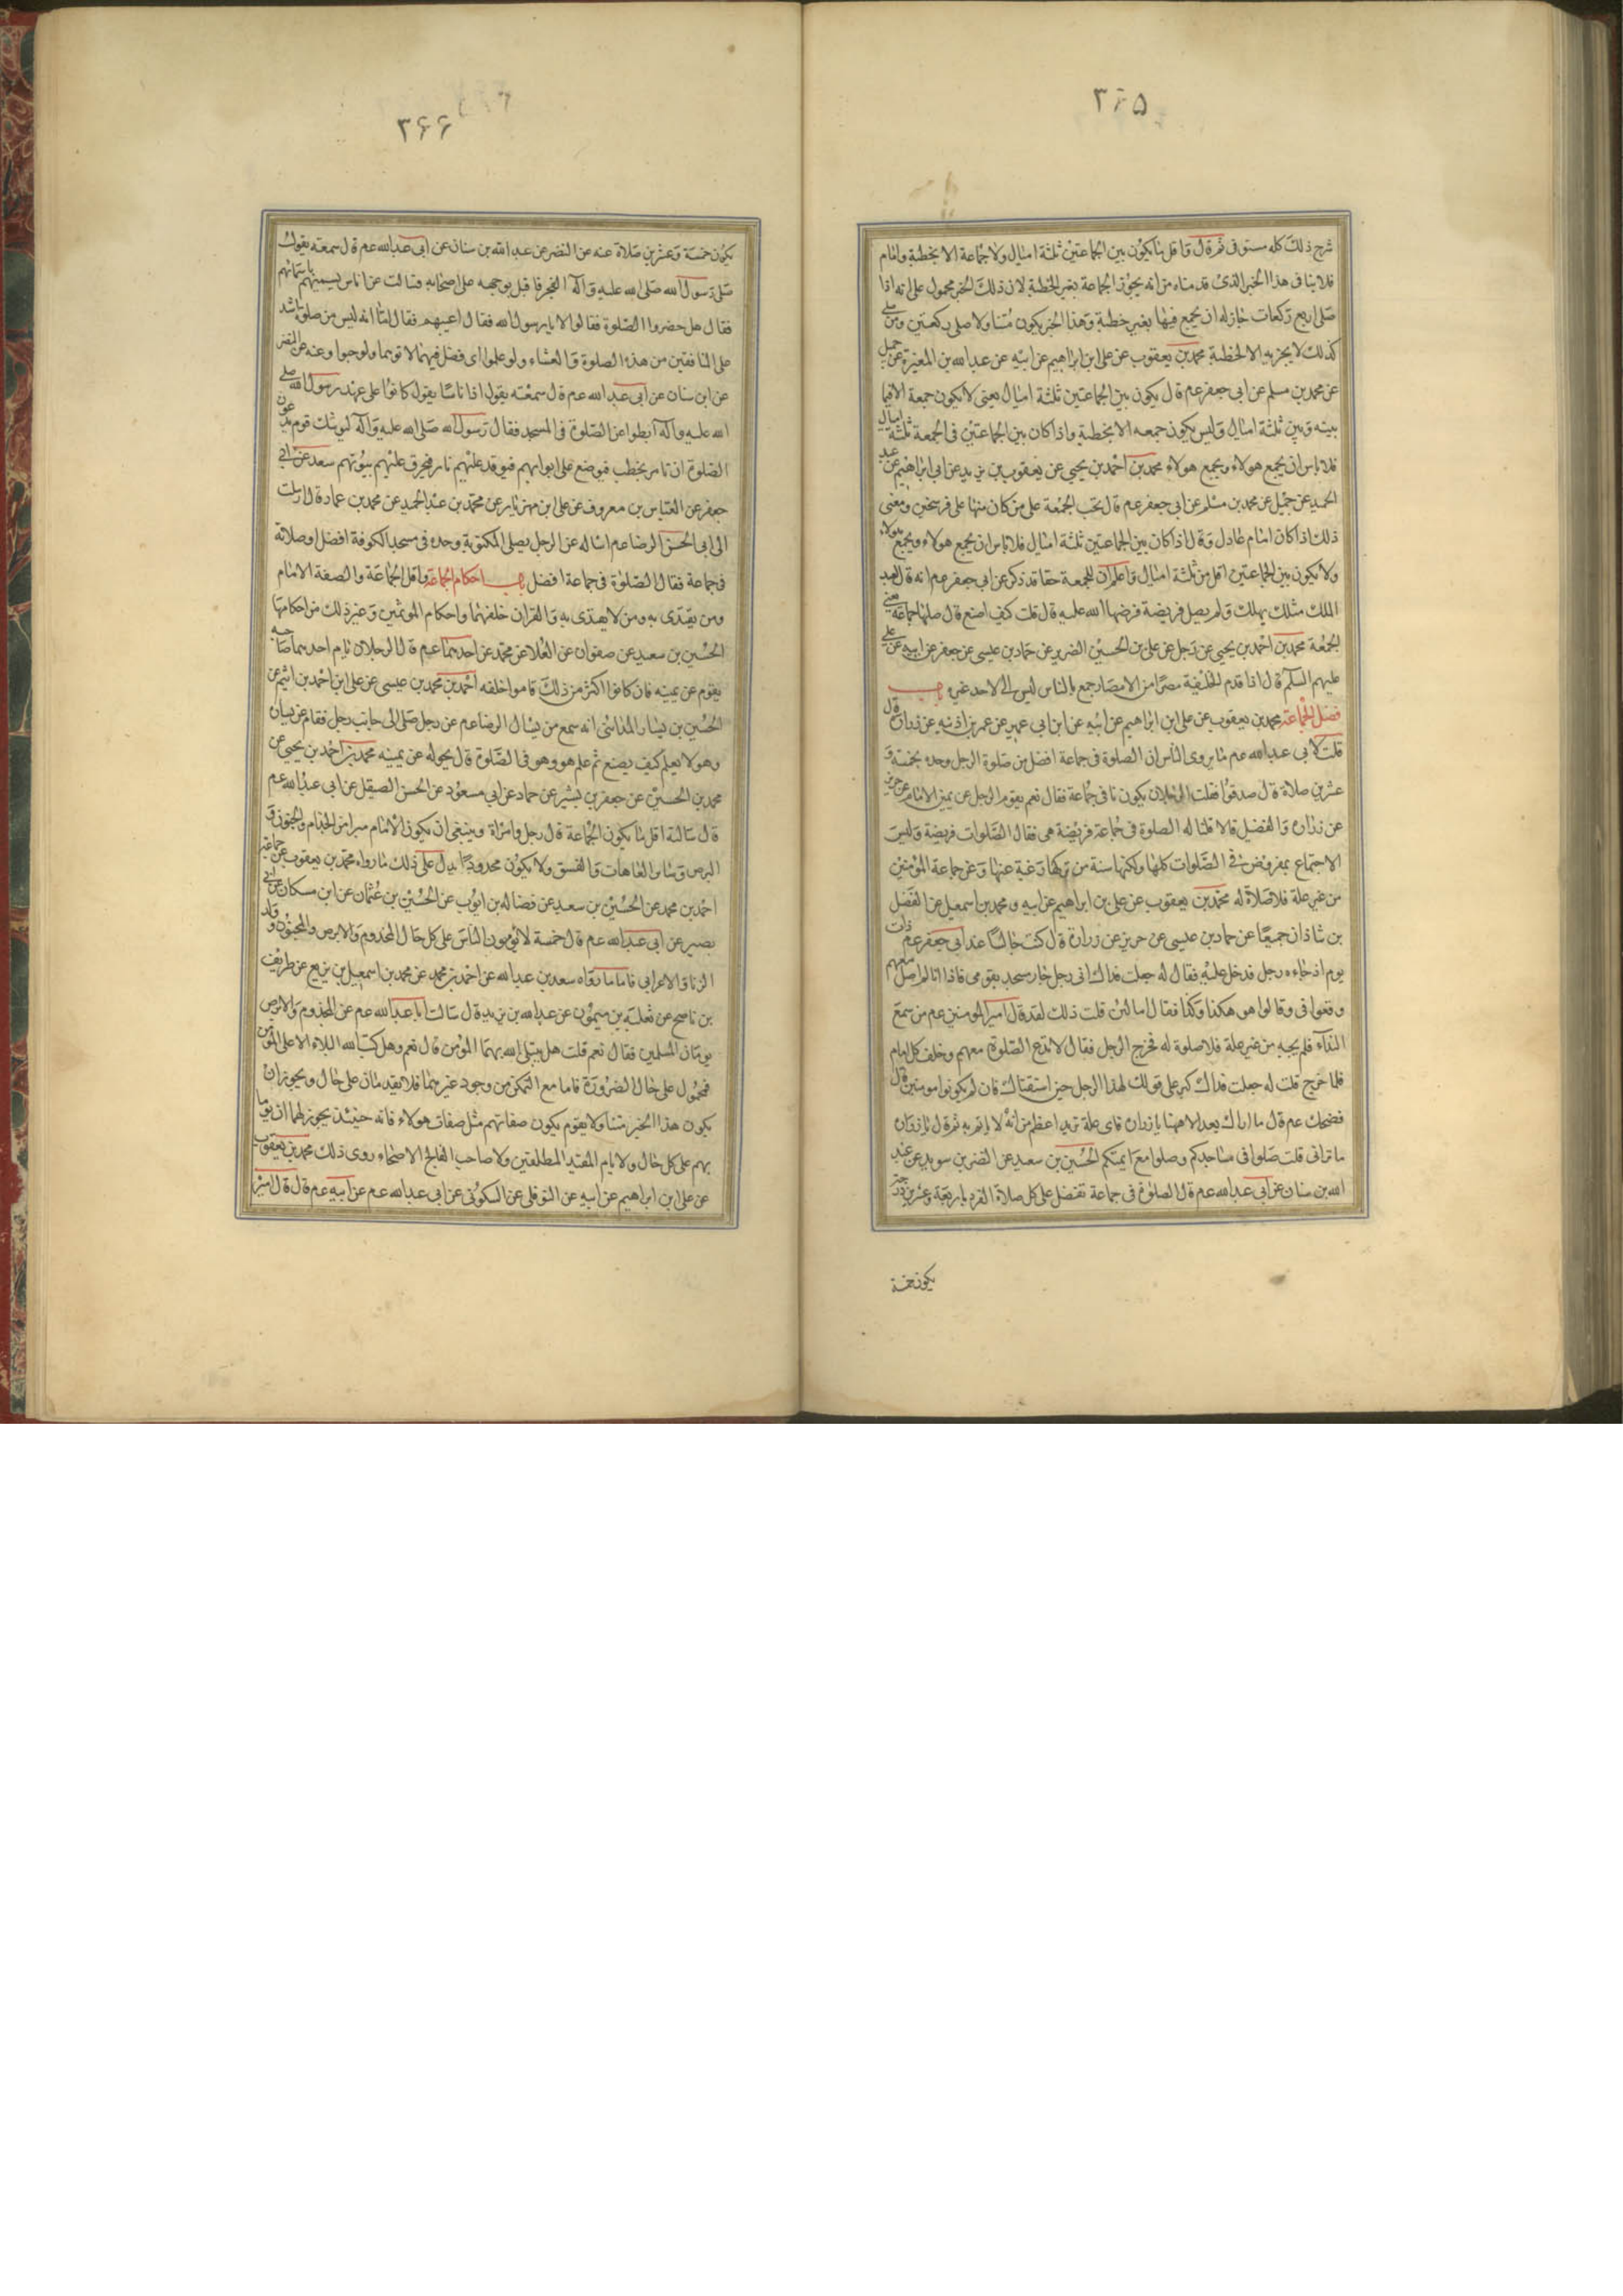 ٣٦٥
شرح ذلك كله مستوفى ثم قال واقل ما يكون بين الجماعتين ثلثة اميال ولا جماعة الا بخطبة وامام
فلا ينافى هذا الخبر الذى قدمناه من انه يجوز الجماعة بغير الخطبة لان ذلك الخبر محمول على انه اذا
صلى اربع ركعات جاز له ان يجمع فيها بغير خطبة وهذا الخبر يكون متناولا صلى ركعتين ومن
كذلك لا يجزيه الا الخطبة محمد بن يعقوب عن على ابن ابراهيم عن ابيه عن عبد الله بن المغيرة عن جميل
عن محمد بن مسلم عن ابى جعفر عم قال يكون بين الجماعتين ثلثة اميال يعنى لا يكون جمعة الا فيما
بينه وبين ثلثة اميال وليس يكون جمعه الا بخطبة واذا كان بين الجماعتين فى الجمعة ثلثة اميال
فلا باس ان يجمع هولاء ويجمع هولاء محمد بن احمد بن يحيى عن يعقوب بن يزيد عن ابراهيم عن عبد
الحميد عن جميل عن محمد بن مسلم عن ابى جعفر عم قال تجب الجمعة على من كان منها على فرسخين ومعنى
ذلك اذا كان امام عادل وقال اذا كان بين الجماعتين ثلثة اميال فلا باس ان يجمع هولاء ويجمع هولاء
ولا يكون بين الجماعتين اقل من ثلثة اميال واعلم ان للجمعة حقا قد ذكر عن ابى جعفر عم انه قال لعبد
الملك مثلك يهلك ولم يصل فريضة فرضها الله عليه قال قلت كيف اصنع قال صلها جماعة يعنى
الجمعة محمد بن احمد بن يحيى عن رجل عن على بن الحسين الضرير عن حماد بن عيسى عن جعفر عن ابيه عن على
عليهم السلم قال اذا قدم الخليفة مصرا من الامصار جمع بالناس ليس ذلك لاحد غيره باب
فضل الجماعة محمد بن يعقوب عن على ابن ابراهيم عن ابيه عن ابن ابى عمير عن عمر بن اذينه عن زرارة قال
قلت لابى عبد الله عم ما يروى الناس ان الصلوة فى جماعة افضل من صلوة الرجل وحده بخمسة و
عشرين صلاة قال صدقوا فقلت الرجلان يكونان فى جماعة فقال نعم يقوم الرجل عن يمين الامام عن حريز
عن زرارة والفضيل قالا قلنا له الصلوة فى جماعة فريضة هى فقال الصلوات فريضة وليس
الاجتماع بمفروض فى الصلوات كلها ولكنها سنة من تركها رغبة عنها وعن جماعة المؤمنين
من غير علة فلا صلاة له محمد بن يعقوب عن على بن ابراهيم عن ابيه ومحمد بن اسمعيل عن الفضل
بن شاذان جميعا عن حماد بن عيسى عن حريز عن زرارة قال كنت جالسا عند ابى جعفر عم ذات
يوم اذ جاءه رجل فدخل عليه فقال له جعلت فداك انى رجل جار مسجد بقومى فاذا انا لم اصل معهم
وقعوا فى وقالوا هو هكذا وكذا فقال اما لئن قلت ذلك لقد قال امير المومنين عم من سمع
النداء فلم يجبه من غير علة فلا صلوة له فخرج الرجل فقال لا تدع الصلوة معهم وخلف كل امام
فلما خرج قلت له جعلت فداك كبر على قولك لهذا الرجل حين استفتاك فان لم يكونوا مومنين قال
فضحك عم قال ما اراك بعد الا ههنا يا زرارة فاى علة تريد اعظم من انه لا ياتم به ثم قال يا زرارة
ما ترانى قلت صلوا فى مساجدكم وصلوا مع ائمتكم الحسين بن سعيد عن النضر بن سويد عن عبد
الله بن سنان عن ابى عبد الله عم قال الصلوة فى جماعة تفضل على كل صلاة الفرد باربعة وعشرين درجة
يكون خمسة
٣٦٦
يكون خمسة وعشرين صلاة عنه عن النضر عن عبد الله بن سنان عن ابى عبد الله عم قال سمعته يقول
صلى رسول الله صلى الله عليه وآله الفجر فاقبل بوجهه على اصحابه فسالت عن اناس يسميهم باسمائهم
فقال هل حضروا الصلوة فقالوا لا يا رسول الله فقال اغيب هم فقال اما انه ليس من صلوة اشد
على المنافقين من هذه الصلوة والعشاء ولو علموا اى فضل فيهما لاتوهما ولو حبوا وعنه عن النضر
عن ابن سنان عن ابى عبد الله عم قال سمعته يقول ان اناسا يقول كانوا على عهد رسول الله صلى
الله عليه وآله ابطوا عن الصلوة فى المسجد فقال رسول الله صلى الله عليه وآله ليوشك قوم يدعون
الصلوة ان نامر بحطب فيوضع على ابوابهم فيوقد عليهم نار فيحرق عليهم بيوتهم سعد عن ابى
جعفر عن العباس بن معروف عن على ابن مهزيار عن محمد بن عبد الحميد عن محمد بن عمارة قال ارسلت
الى ابى الحسن الرضا عم اساله عن الرجل يصلى المكتوبة وحده فى مسجد الكوفة افضل او صلاته
فى جماعة فقال الصلوة فى جماعة افضل باب احكام الجماعة واقل الجماعة والصفة الامام
ومن يقتدى به ومن لا يقتدى به والقران خلفهما واحكام الموتمين وغير ذلك من احكامها
الحسين بن سعيد عن صفوان عن العلا عن محمد عن احدهما عم قال الرجلان يام احدهما صاحبه
يقوم عن يمينه فان كانوا اكثر من ذلك قاموا خلفه احمد بن محمد بن عيسى عن على ابن احمد بن اشيم عن
الحسين بن يسار المدائنى انه سمع من يسال الرضا عم عن رجل صلى الى جانب رجل فقام عن يساره
وهو لا يعلم كيف يصنع ثم علم هو وهو فى الصلوة قال يحوله عن يمينه محمد بن احمد بن يحيى عن
محمد بن الحسين عن جعفر بن بشير عن حماد عن ابى مسعود عن الحسن الصيقل عن ابى عبد الله عم
قال سالته اقل ما يكون الجماعة قال رجل وامراة وينبغى ان يكون الامام مبرا من الجذام والجنون و
البرص وساير العاهات والفسق ولا يكون محدودا يدل على ذلك ما رواه محمد بن يعقوب عن جماعة عن
احمد بن محمد عن الحسين بن سعيد عن فضاله بن ايوب عن الحسين بن عثمان عن ابن مسكان عن ابى
بصير عن ابى عبد الله عم قال خمسة لا يؤمون الناس على كل حال المجذوم والابرص والمجنون وولد
الزنا والاعرابى فاما ما رواه سعد بن عبد الله عن احمد بن محمد عن محمد بن اسمعيل بن بزيع عن ظريف
بن ناصح عن ثعلبة بن ميمون عن عبد الله بن يزيد قال سالت ابا عبد الله عم عن المجذوم والابرص
يومان المسلمين فقال نعم قلت هل يبتلى الله بهما المؤمن قال نعم وهل كتب الله البلاء الا على المؤمن
فمحمول على حال الضرورة فاما مع التمكن من وجود غيرهما فلا يقدمان على حال ويجوز ان
يكون هذا الخبر متناولا بقوم يكون صفاتهم مثل صفات هولاء فانه حينئذ يجوز لهما ان يوما
بهم على كل حال ولا يام المقيد المطلقين ولا صاحب الفالج الاصحاء روى ذلك محمد بن يعقوب
عن على ابن ابراهيم عن ابيه عن النوفلى عن السكونى عن ابى عبد الله عم عن ابيه عم قال قال امير